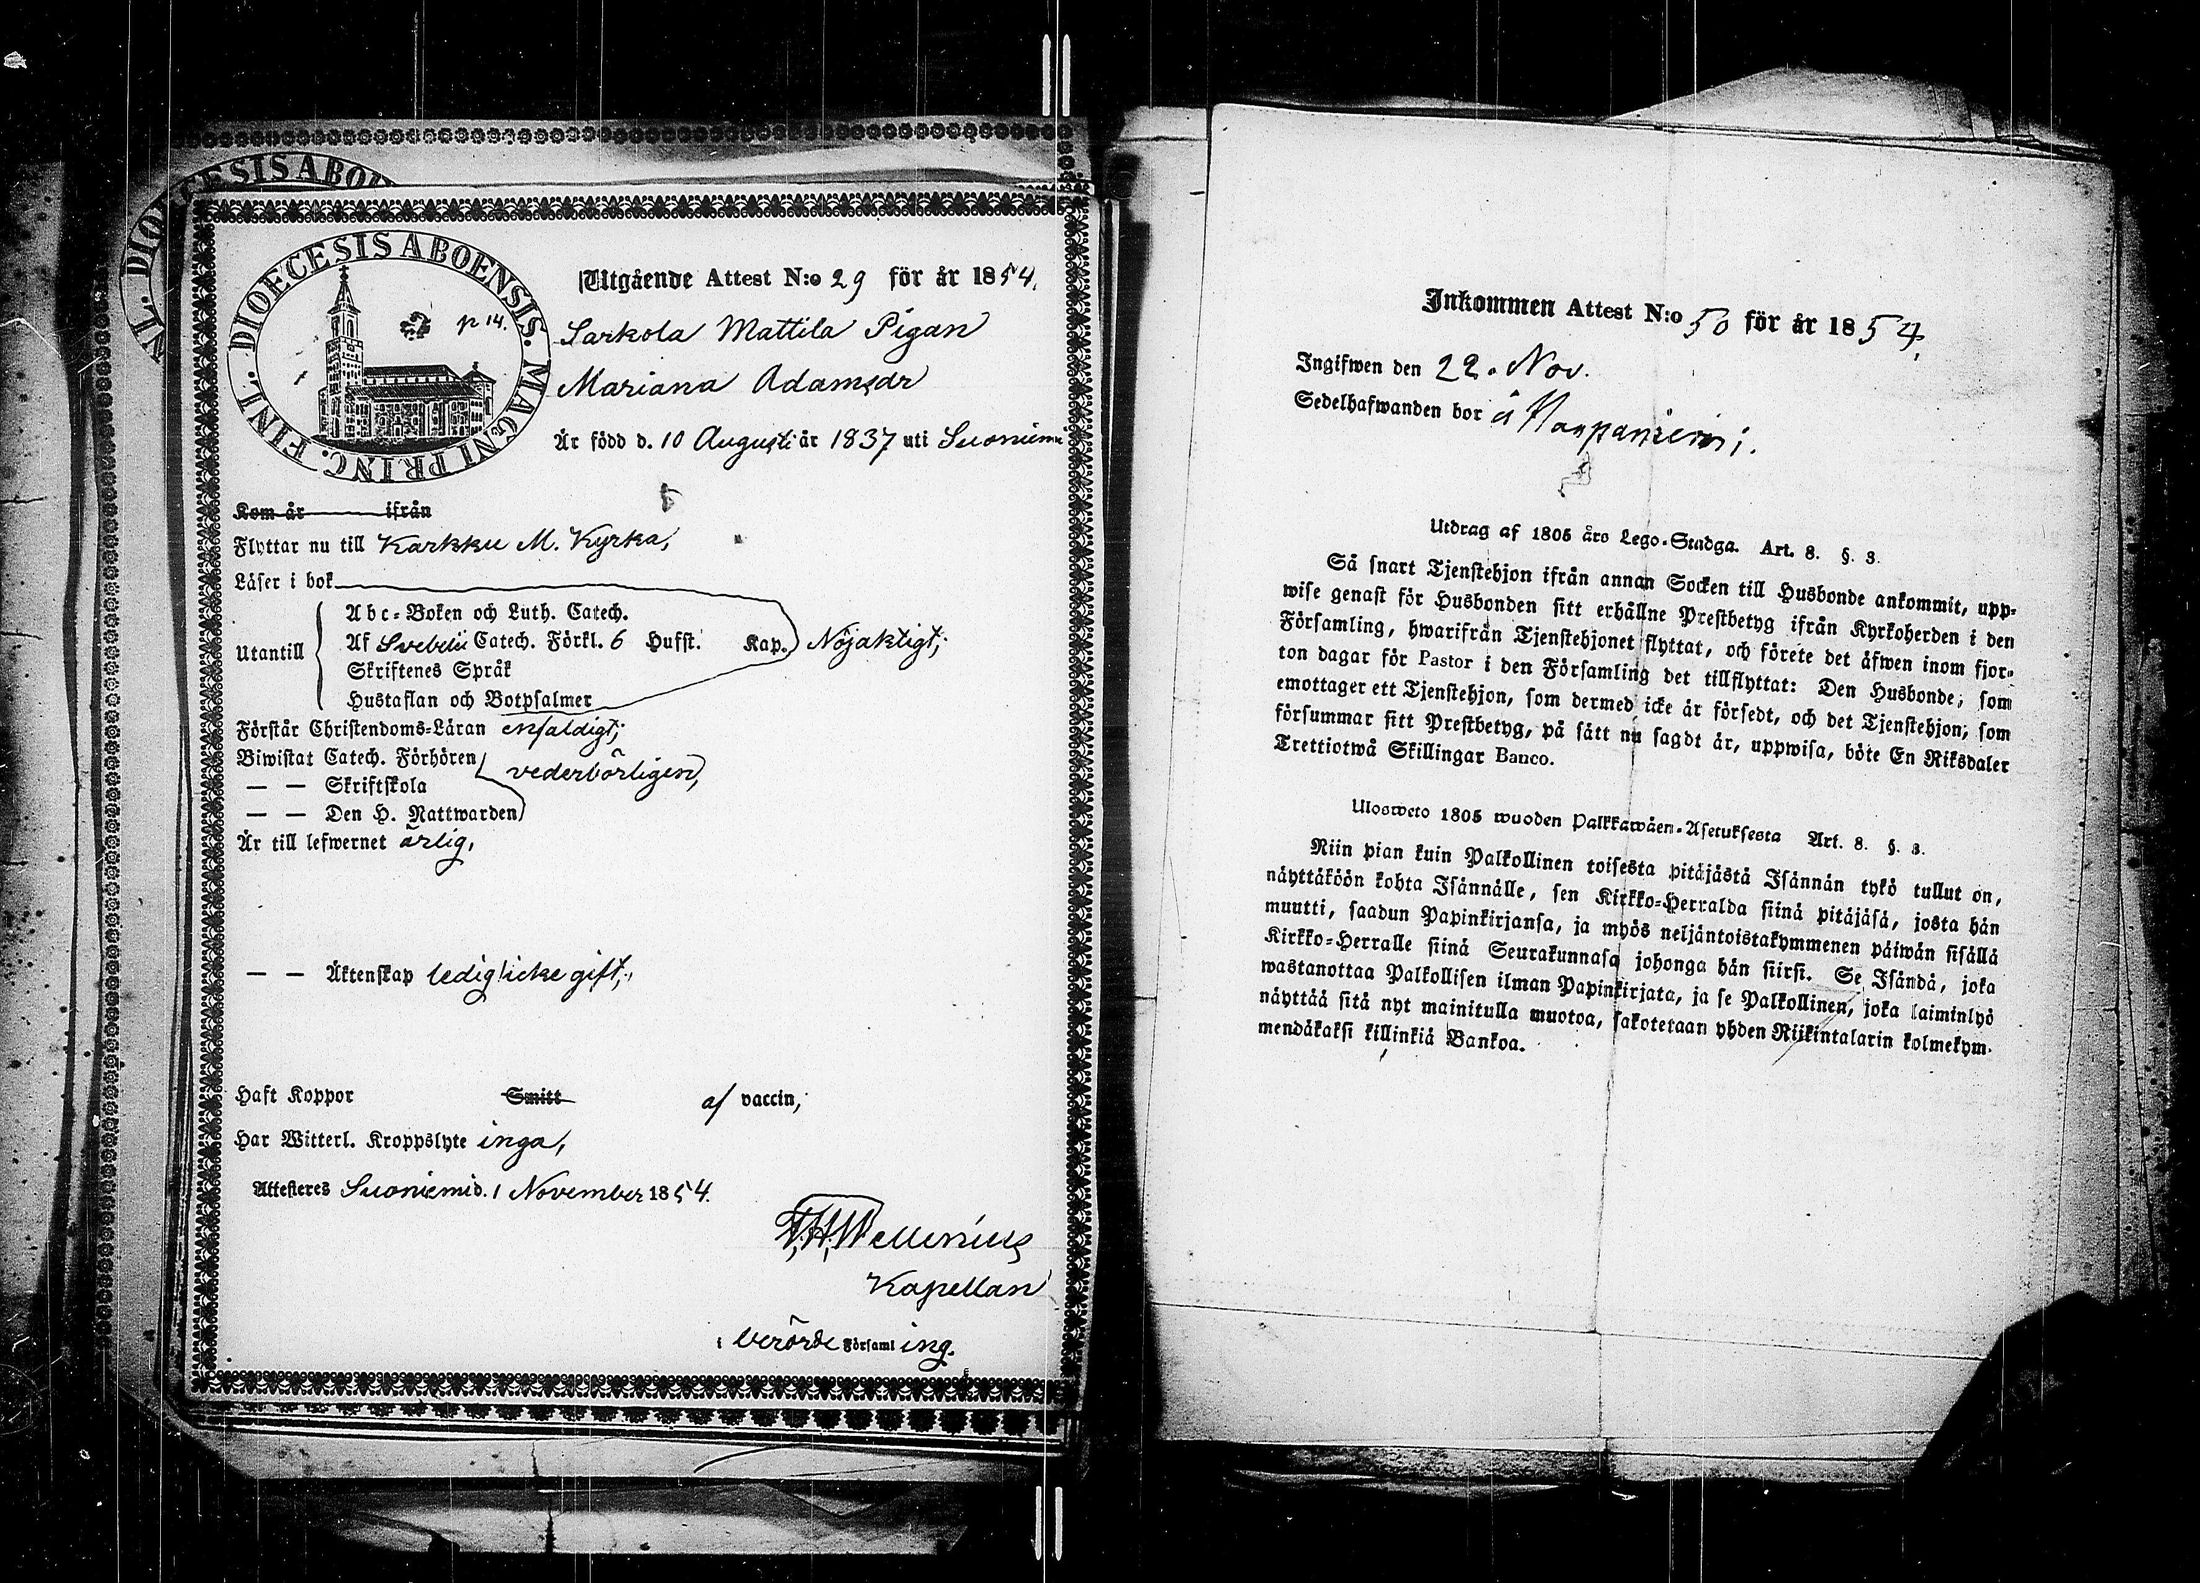 NL. DIOECESIS ABOE
FINL. DIOECESIS ABOENSIS. MAGNI PRINC.
p 14.
Utgående Attest N:o 29 för år 1854.
Sarkola Mattila Pigan
Mariana Adamsdr
Är född d. 10 Augusti år 1837 uti Suoniemi
Kom år ifrån
Flyttar nu till Karkku M. Kyrka,
Läser i bok
Utantill
Abc-Boken och Luth. Catech.
Af Svebelii Catech. Förkl. 6 Hufst. Kap. Nöjaktigt;
Skriftenes Språk
Hustaflan och Botpsalmer
Förstår Christendoms-Läran enfaldigt;
Biwistat Catech. Förhören
vederbörligen,
— — Skriftskola
— — Den H. Nattwarden
Är till lefwernet ärlig,
— — Äktenskap ledig icke gift;
Haft Koppor Smitt af vaccin,
Har Witterl. Kroppslyte inga,
Attesteres Suoniemi d. 1 November 1854.
Wellenius
Kapellan
i berörde Församl ing.
Inkommen Attest N:o 50 för år 1854.
Ingifwen den 22. Nov.
Sedelhafwanden bor å
Utdrag af 1805 års Lego-Stadga. Art. 8. §. 3.
Så snart Tjenstehjon ifrån annan Socken till Husbonde ankommit, upp-
wise genast för Husbonden sitt erhållne Prestbetyg ifrån Kyrkoherden i den
Församling, hwarifrån Tjenstehjonet flyttat, och förete det äfwen inom fjor-
ton dagar för Pastor i den Församling det tillflyttat: Den Husbonde, som
emottager ett Tjenstehjon, som dermed icke är försedt, och det Tjenstehjon, som
försummar sitt Prestbetyg, på sätt nu sagdt är, uppwisa, böte En Riksdaler
Trettiotwå Skillingar Banco.
Ulosweto 1805 wuoden Palkkawäen-Asetuksesta Art. 8. §. 3.
Niin pian kuin Palkollinen toisesta pitäjästä Isännän tykö tullut on,
näyttäköön kohta Isännälle, sen Kirkko-Herralda siinä pitäjäsä, josta hän
muutti, saadun Papinkirjansa, ja myös neljäntoistakymmenen päiwän sisällä
Kirkko-Herralle siinä Seurakunnasa johonga hän siirsi. Se Isändä, joka
wastanottaa Palkollisen ilman Papinkirjata, ja se Palkollinen, joka laiminlyö
näyttää sitä nyt mainitulla muotoa, sakotetaan yhden Riikintalarin kolmekym-
mendäkaksi killinkiä Bankoa.